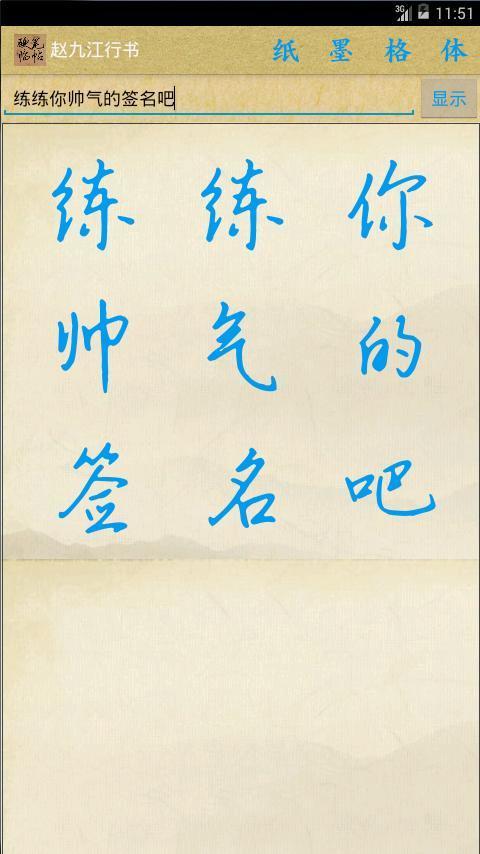 3G 11:51
硬笔临帖 赵九江行书 纸 墨 格 体
练练你帅气的签名吧 显示
练 练 你
帅 气 的
签 名 吧